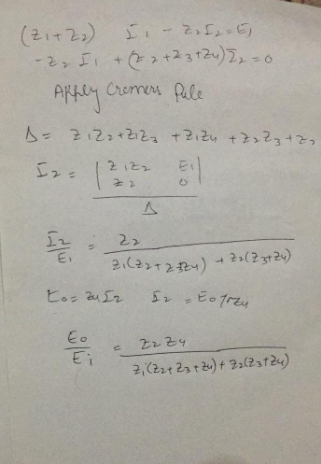 (Z1+Z2) I1 - Z2I2=E1
-Z2 I1 + (Z2+Z3+Z4)I2=0
Apply Cremers Rule
Δ= Z1Z2+Z1Z3 +Z1Z4 +Z2Z3+Z2
I2 = | Z1Z2 E1 |
Z2 0
Δ
I2/E1 = Z2 / Z1(Z2+Z3Z4) + Z2(Z3+Z4)
Eo= Z4I2 I2 = Eo/Z4
Eo/Ei = Z2Z4 / Z1(Z2+Z3+Z4)+Z2(Z3+Z4)